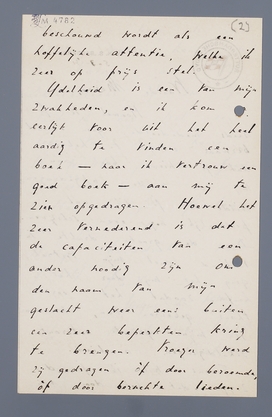 M 4782
(2)
beschouwd wordt als een
hoffelijke attentie, welke ik
zeer op prijs stel.
IJdelheid is een van mijn
zwakheden, en ik kom
eerlijk voor uit het heel
aardig te vinden een
boek — naar ik vertrouw een
goed boek — aan mij te
zien opgedragen. Hoewel het
zeer vernederend is dat
de capaciteiten van een
ander noodig zijn om
den naam van mijn
geslacht weer eens buiten
een zeer beperkten kring
te brengen. Vroeger werd
zij gedragen òf door beroemde,
òf door beruchte lieden.